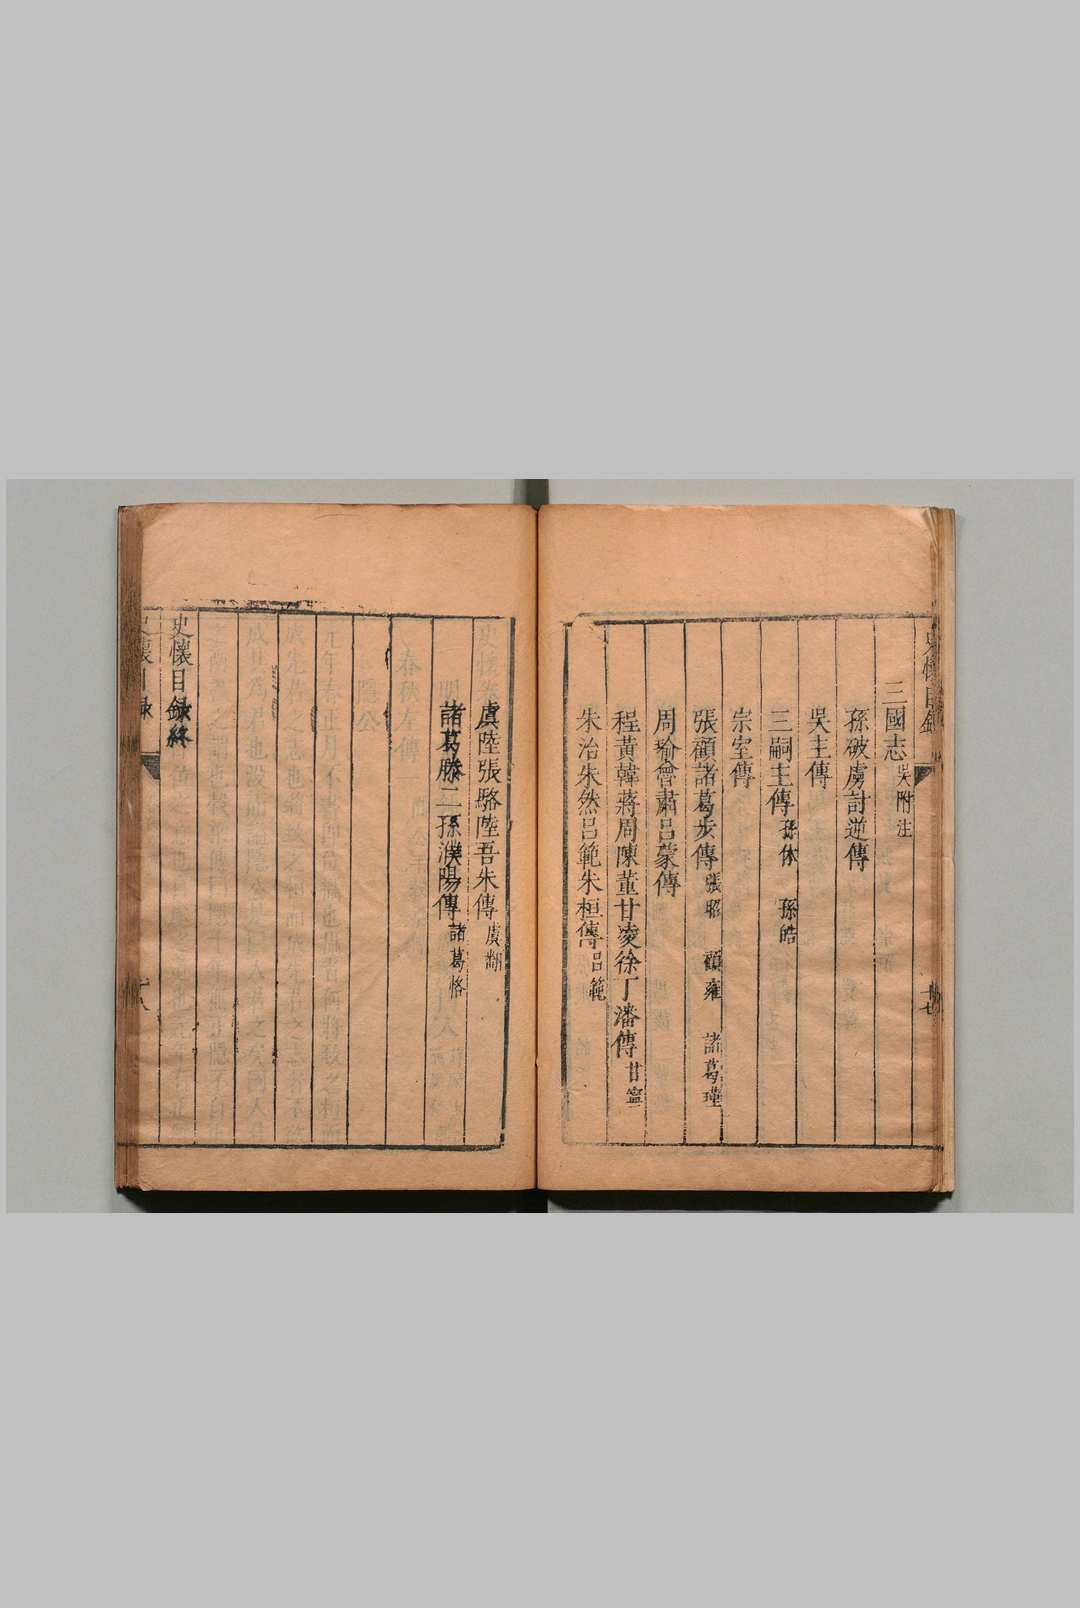 史懷目錄
十七
三國志 吳附注
孫破虜討逆傳
吳主傳
三嗣主傳 孫休 孫皓
宗室傳
張顧諸葛步傳 張昭 顧雍 諸葛瑾
周瑜魯肅呂蒙傳
程黃韓蔣周陳董甘凌徐丁潘傳 甘寧
朱治朱然呂範朱桓傳 呂範
虞陸張駱陸吾朱傳 虞翻
諸葛滕二孫濮陽傳 諸葛恪
史懷目錄終
史懷目錄
十八